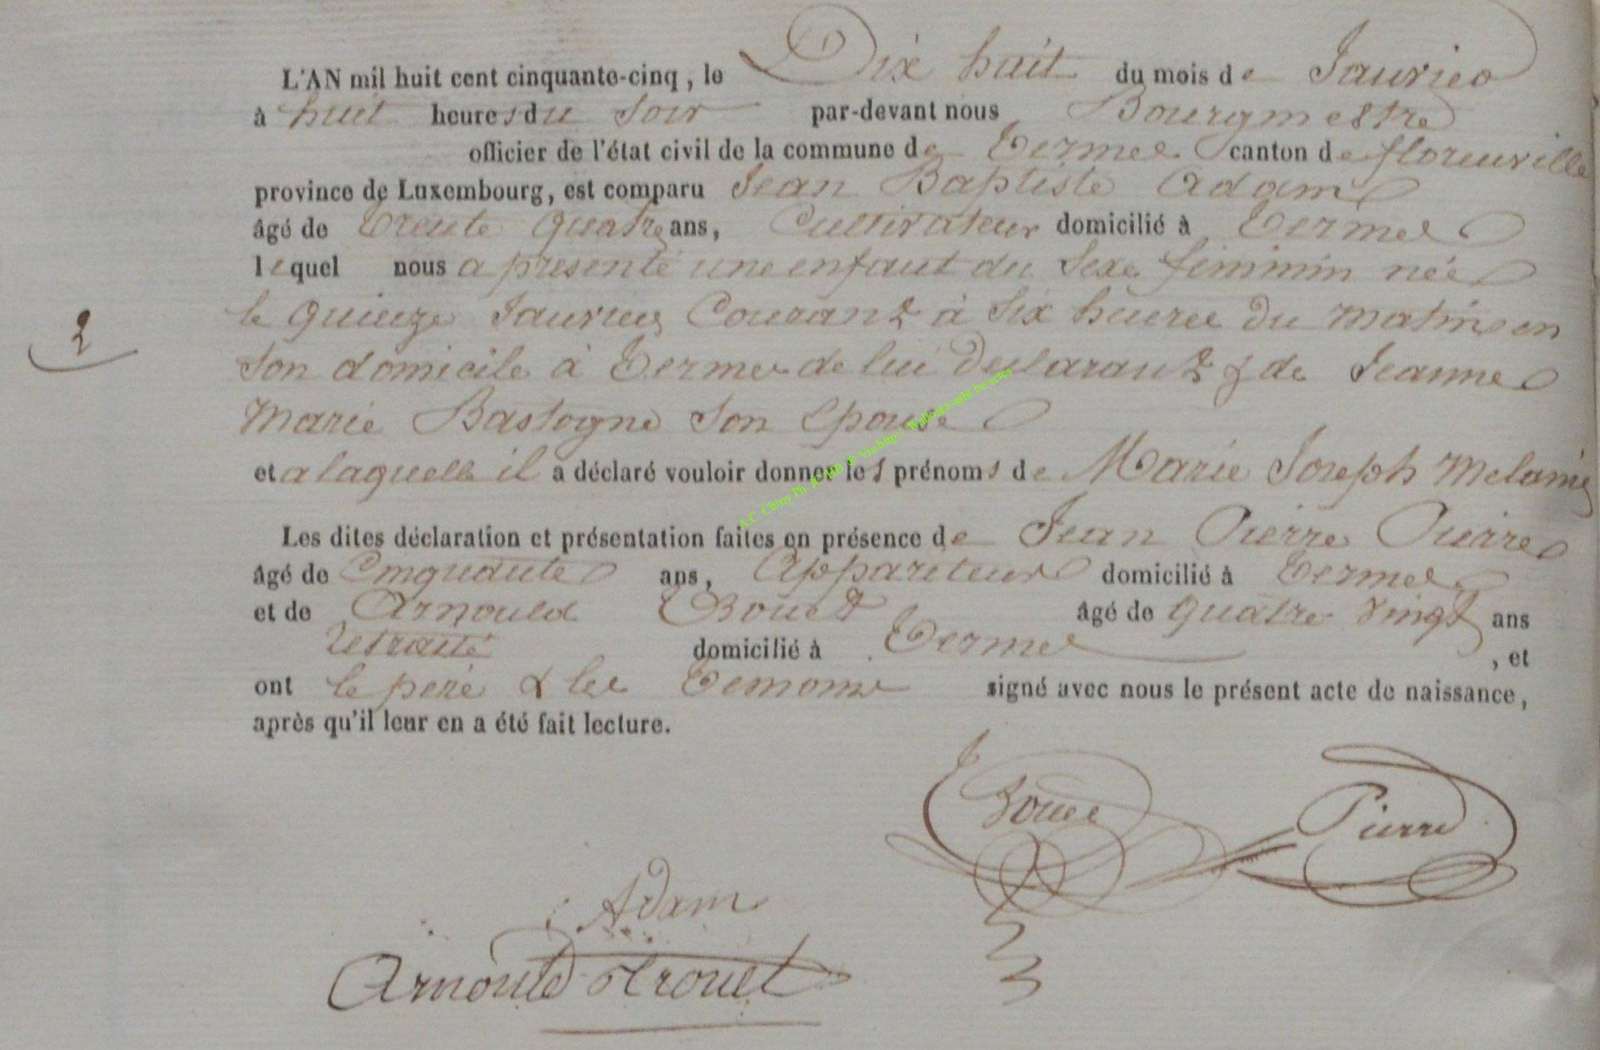 L'AN mil huit cent cinquante-cinq, le Dix huit du mois de Janvier
à huit heures du Soir par-devant nous Bourgmestre
officier de l'état civil de la commune de Termes canton de florenville
province de Luxembourg, est comparu Jean Baptiste Adam
âgé de trente quatre ans, Cultivateur domicilié à Termes
lequel nous a présenté une enfant du Sexe féminin née
2
le quinze Janvier Courant à Six heures du matin en
Son domicile à Termes de lui Déclarant & de Jeanne
Marie Bastogne Son épouse
et a laquelle il a déclaré vouloir donner les prénoms de Marie Joseph Melanie
Les dites déclaration et présentation faites en présence de Jean Pierre Pierre
âgé de Cinquante ans, Appariteur domicilié à Termes
et de Arnould âgé de quatre vingt ans
retraité domicilié à Termes, et
ont le père & les Temoins signé avec nous le présent acte de naissance,
après qu'il leur en a été fait lecture.
Pierre
Adam
Arnould